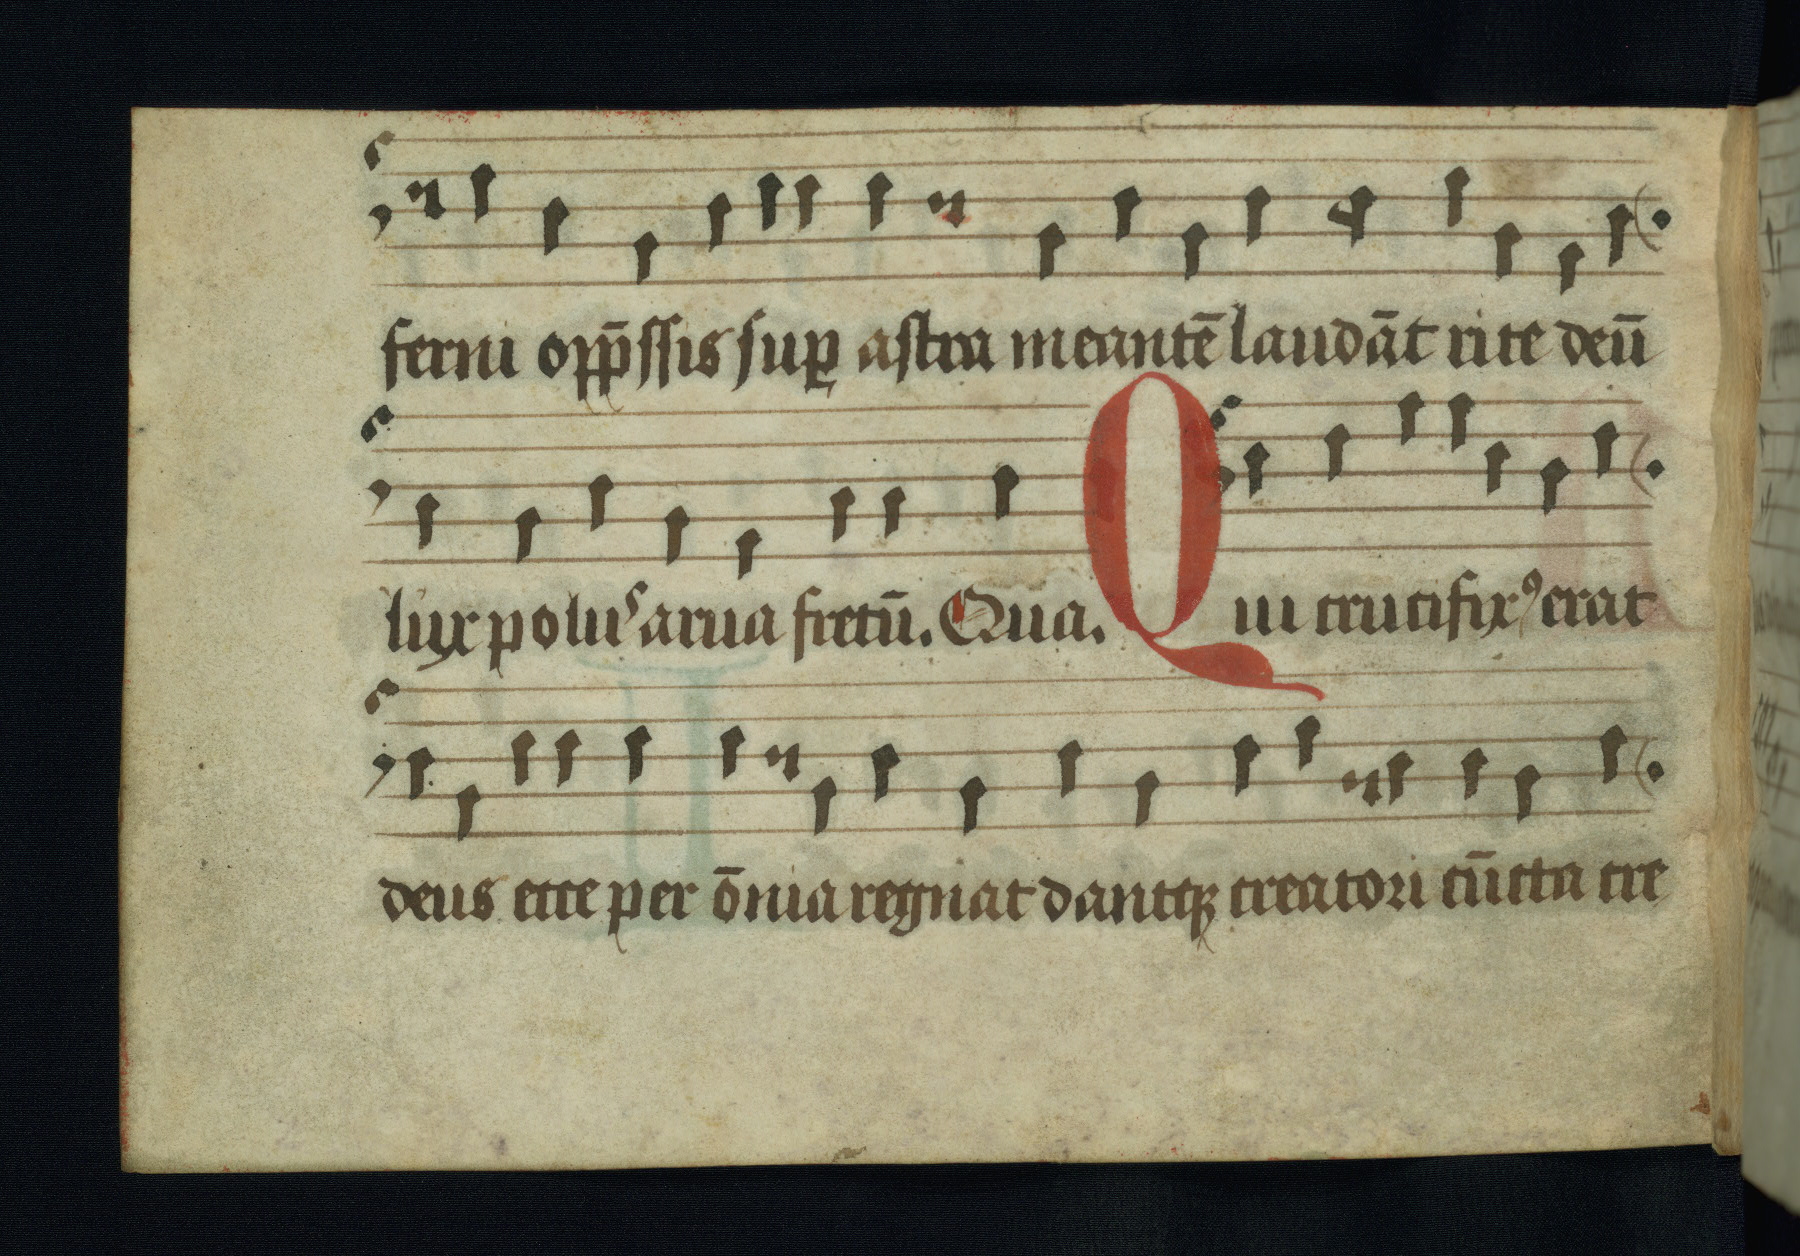 ferni opp̄ssis sup̱ astra meantē laudāt rite deū
lux polus arua fretū. Qua. Qui crucifixꝰ erat
deus ecce per ōnia regnat dantqꝫ creatori cūcta cre